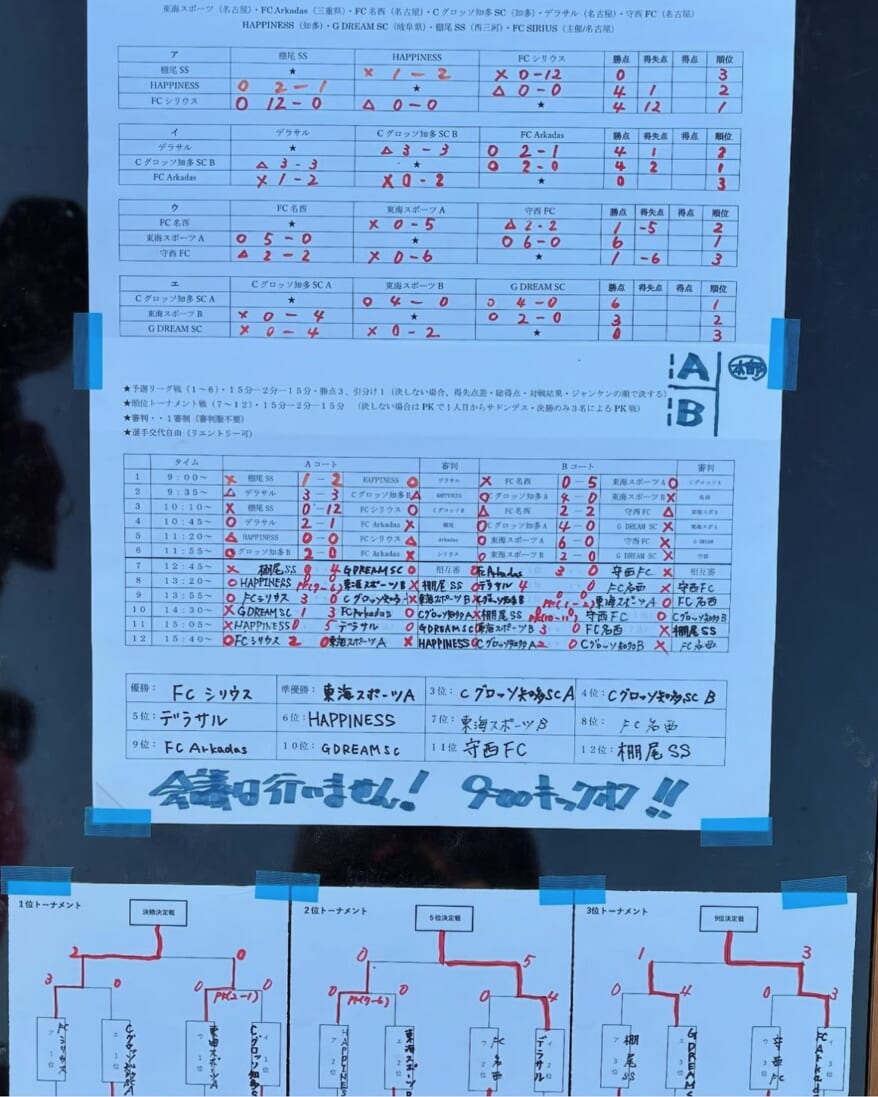 東海スポーツ（名古屋）・FC Arkadas（三重県）・FC 名西（名古屋）・C グロッソ知多 SC（知多）・デラサル（名古屋）・守西 FC（名古屋）
HAPPINESS（知多）・G DREAM SC（岐阜県）・棚尾 SS（西三河）・FC SIRIUS（主催/名古屋）
ア 棚尾 SS HAPPINESS FC シリウス 勝点 得失点 得点 順位
棚尾 SS ★ × 1-2 × 0-12 0 3
HAPPINESS ○ 2-1 ★ △ 0-0 4 1 2
FC シリウス ○ 12-0 △ 0-0 ★ 4 12 1
イ デラサル C グロッソ知多 SC B FC Arkadas 勝点 得失点 得点 順位
デラサル ★ △ 3-3 ○ 2-1 4 1 2
C グロッソ知多 SC B △ 3-3 ★ ○ 2-0 4 2 1
FC Arkadas × 1-2 × 0-2 ★ 0 3
ウ FC 名西 東海スポーツ A 守西 FC 勝点 得失点 得点 順位
FC 名西 ★ × 0-5 △ 2-2 1 -5 2
東海スポーツ A ○ 5-0 ★ ○ 6-0 6 1
守西 FC △ 2-2 × 0-6 ★ 1 -6 3
エ C グロッソ知多 SC A 東海スポーツ B G DREAM SC 勝点 得失点 得点 順位
C グロッソ知多 SC A ★ ○ 4-0 ○ 4-0 6 1
東海スポーツ B × 0-4 ★ ○ 2-0 3 2
G DREAM SC × 0-4 × 0-2 ★ 0 3
A 本部
B
★予選リーグ戦（1～6）・15分―2分―15分・勝点3、引分け1（決しない場合、得失点差・総得点・対戦結果・ジャンケンの順で決する）
★順位トーナメント戦（7～12）・15分―2分―15分 （決しない場合は PK で1人目からサドンデス・決勝のみ3名による PK 戦）
★審判・・1審制（審判服不要）
★選手交代自由（リエントリー可）
タイム Aコート 審判 Bコート 審判
1 9:00～ × 棚尾 SS 1-2 HAPPINESS ○ デラサル × FC 名西 0-5 東海スポーツ A ○
2 9:35～ △ デラサル 3-3 C グロッソ知多 B △ HAPPINESS ○ C グロッソ知多 A 4-0 東海スポーツ B × 名西
3 10:10～ × 棚尾 SS 0-12 FC シリウス ○ △ FC 名西 2-2 守西 FC △
4 10:45～ ○ デラサル 2-1 FC Arkadas × 棚尾 ○ C グロッソ知多 A 4-0 G DREAM SC ×
5 11:20～ △ HAPPINESS 0-0 FC シリウス △ Arkadas ○ 東海スポーツ A 6-0 守西 FC × G DREAM
6 11:55～ ○ C グロッソ知多 B 2-0 FC Arkadas × シリウス ○ 東海スポーツ B 2-0 G DREAM SC × 守西
7 12:45～ × 棚尾SS 0 4 GDREAMSC ○ 相互審 ○ FC Arkadas 3 0 守西FC × 相互審
8 13:20～ ○ HAPPINESS 0 0 PK(7-6) 東海スポーツB × 棚尾SS ○ デラサル 4 0 FC名西 × 守西FC
9 13:55～ ○ FCシリウス 3 0 Cグロッソ知多A × 東海スポーツB × Cグロッソ知多B 0 0 PK(1-2) 東海スポーツA ○ FC名西
10 14:30～ × GDREAMSC 1 3 FCArkadas ○ Cグロッソ知多A × 棚尾SS 0 0 PK(10-11) 守西FC ○ Cグロッソ知多B
11 15:05～ × HAPPINESS 0 5 デラサル ○ GDREAMSC ○ 東海スポーツB 3 0 FC名西 × 棚尾SS
12 15:40～ ○ FCシリウス 2 0 東海スポーツA × HAPPINESS ○ Cグロッソ知多A 2 0 Cグロッソ知多B × FC名西
優勝： FC シリウス 準優勝： 東海スポーツA 3位： Cグロッソ知多SC A 4位： Cグロッソ知多SC B
5位： デラサル 6位： HAPPINESS 7位： 東海スポーツB 8位： FC名西
9位： FC Arkadas 10位： GDREAMSC 11位 守西FC 12位： 棚尾SS
会議は行いません! 9:00キックオフ!!
1位トーナメント
決勝決定戦
2 0
3 0 0 PK(2-1) 0
FCシリウス ア1位
Cグロッソ知多A エ1位
東海スポーツA ウ1位
Cグロッソ知多 イ1位
2位トーナメント
5位決定戦
0 5
0 PK(7-6) 0 0 4
HAPPINESS ア2位
東海スポーツB エ2位
FC名西 ウ2位
デラサル イ2位
3位トーナメント
9位決定戦
1 3
0 4 0 3
棚尾SS ア3位
GDREAMS エ3位
守西FC ウ3位
FCArkad